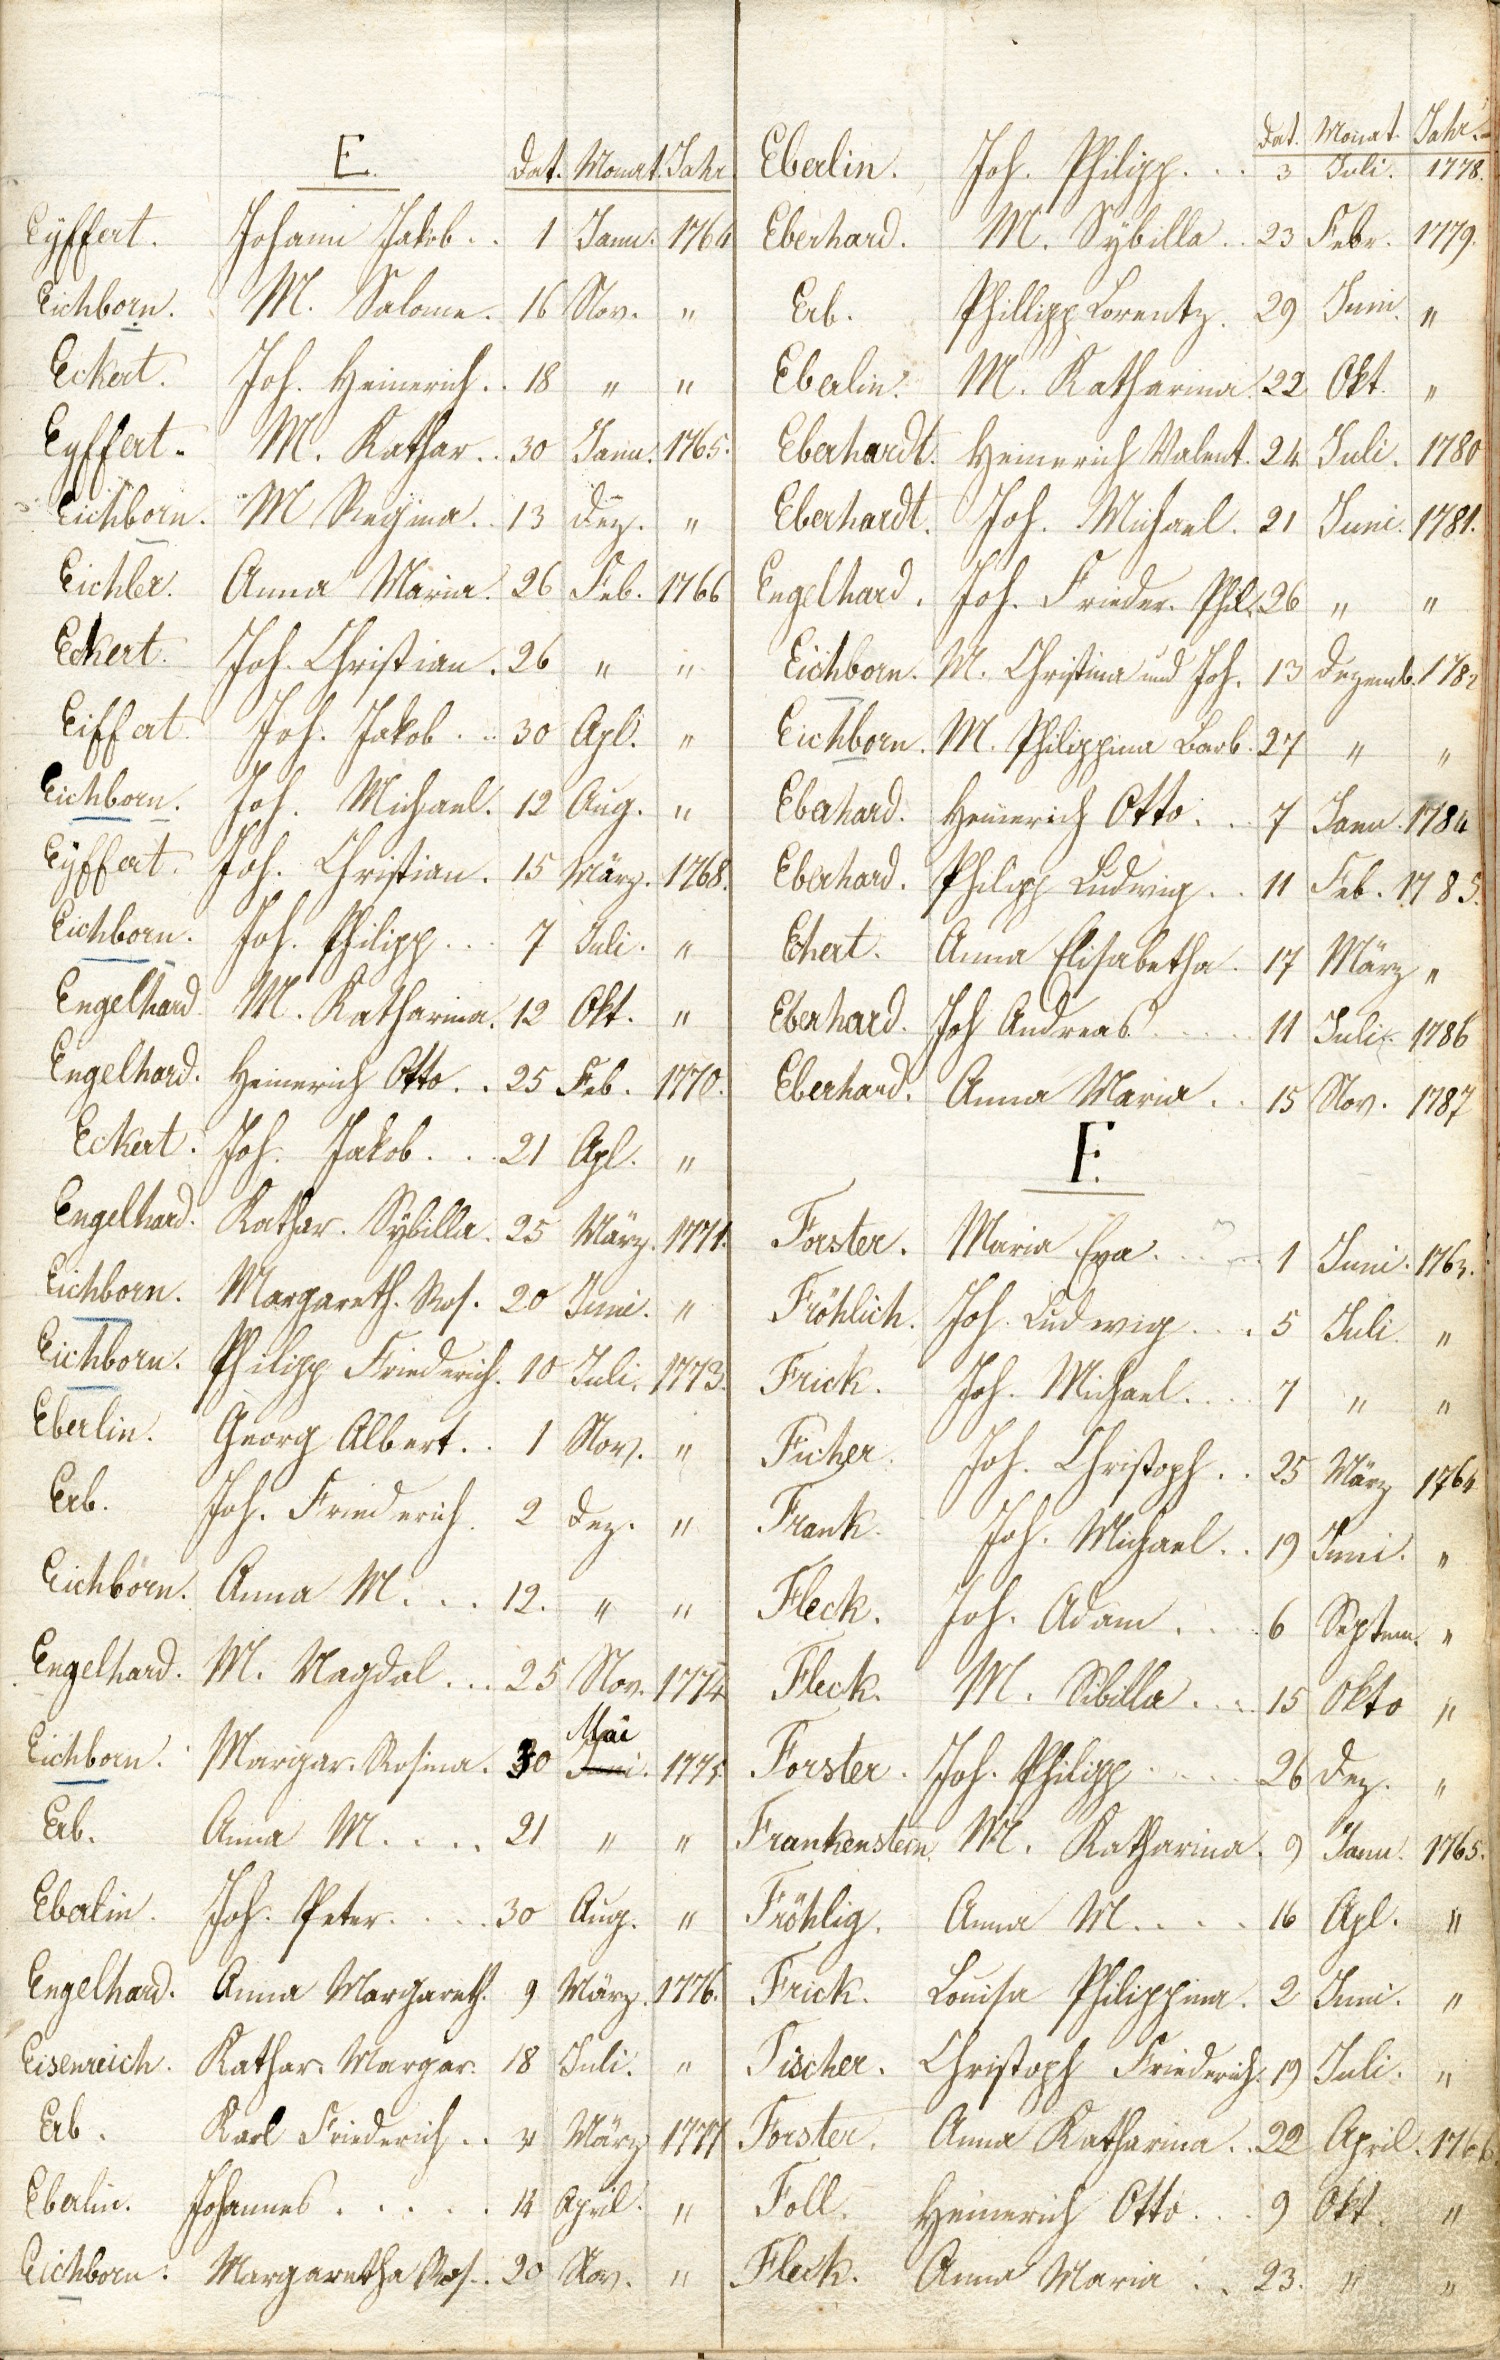 E.
Dat. Monat. Jahr
Eÿffert. Johann Jakob . . 1 Janu. 1764
Eichborn. M. Salome. 16 Nov. "
Eckert. Joh. Heinerich . . 18 " "
Eyffert. M. Kathar. . 30 Janu. 1765.
Eichborn. M Regina . . 13 Dez. "
Eichler. Anna Maria. 26 Feb. 1766
Eckert. Joh. Christian . 26 " "
Eiffert Joh. Jakob . . 30 Apl. "
Eichborn. Joh. Michael. 12 Aug. "
Eÿffert. Joh. Christian . 15 März. 1768.
Eichborn. Joh. Philipp . . . 7 Juli. "
Engelhard. M. Katharina. 12 Okt. "
Engelhard. Heinerich Otto . . 25 Feb. 1770.
Eckert. Joh. Jakob . . . 21 Apl. "
Engelhard. Kathar. Sÿbilla. 25 März. 1771.
Eichborn. Margareth. Ros. 20 Juni. "
Eichborn. Philipp Friederich. 10 Juli. 1773.
Eberlin. Georg Albert. . 1 Nov. "
Erb. Joh. Friederich. 2 Dez. "
Eichborn. Anna M. . . . 12. " "
Engelhard. M. Magdal . . . 25 Nov. 1774
Eichborn. Margar. Rosina. 30 Juni. Mai 1775.
Erb. Anna M. . . . 21 " "
Eberlin. Joh. Peter . . . . 30 Aug. "
Engelhard. Anna Margareth. 9 März. 1776.
Eisenreich. Kathar. Margar. 18 Juli. "
Erb. Karl Friederich . . März 1777
Eberlin. Johannes . . . . . 14 April. "
Eichborn. Margaretha Ros. . 20 Nov. "
Dat. Monat. Jahr.
Eberlin. Joh. Philipp . . . 3 Juli. 1778.
Eberhard. M. Sÿbilla . . 23 Febr. 1779.
Erb. Phillipp Lorentz. 29 Juni. "
Eberlin. M. Katharina. 22 Okt. "
Eberhardt. Heinerich Valent. 24 Juli. 1780
Eberhardt. Joh. Michael. 21 Juni. 1781.
Engelhard. Joh. Frieder. Phil. 26 " "
Eichborn. M. Christina und Joh. 13 Dezemb. 1782
Eichborn. M. Philippina Barb. 27 " "
Eberhard. Heinerich Otto . . 7 Janu. 1784
Eberhard. Philipp Ludwig . . 11 Feb. 1785.
Ehert. Anna Elisabetha. 17 März "
Eberhard. Joh Andreas . . . . 11 Juli. 1786
Eberhard. Anna Maria . . 15 Nov. 1787
F.
Forster. Maria Eva . . . . 1 Juni. 1763.
Fröhlich. Joh. Ludwig . . . 5 Juli. "
Frick. Joh. Michael . . . . 7 " "
Ficher. Joh. Christoph . . 25 März 1764
Frank. Joh. Michael . . 19 Juni. "
Fleck. Joh. Adam . . . 6 Septem. "
Fleck. M. Sibilla . . . 15 Okto "
Forster. Joh. Philipp . . . . 26 Dez. "
Frankenstein. M. Katharina. 9 Janu. 1765.
Fröhlig. Anna M. . . . 16 Apl. "
Frick. Louisa Philippina. 2 Juni. "
Fischer. Christoph Friederich. 19 Juli. "
Forster. Anna Katharina . . 22 April. 1766.
Foll. Heinerich Otto . . . 9 Okt. "
Fleck. Anna Maria . . . 23. " "